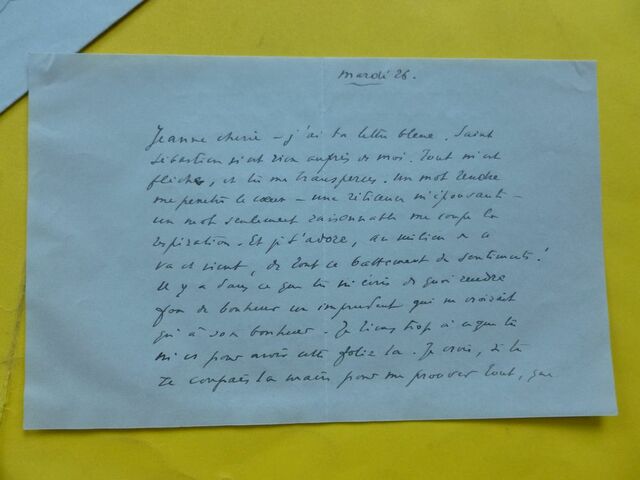 mardi 26.
Jeanne chérie - j'ai ta lettre bleue. Saint
Sébastien n'est rien auprès de moi. Tout m'est
flèche, et tu me transperces. Un mot tendre
me pénètre le cœur - une réticence m'épouvante -
un mot seulement raisonnable me coupe la
respiration. Et je t'adore, au milieu de ce
va et vient, de tout ce battement de sentiments!
Il y a dans ce que tu m'écris de quoi rendre
fou de bonheur un imprudent qui ne croirait
qu'à son bonheur. Je tiens trop à ce que tu
m'es pour avoir cette folie là. Je crois, si tu
te coupais la main pour me prouver tout, que